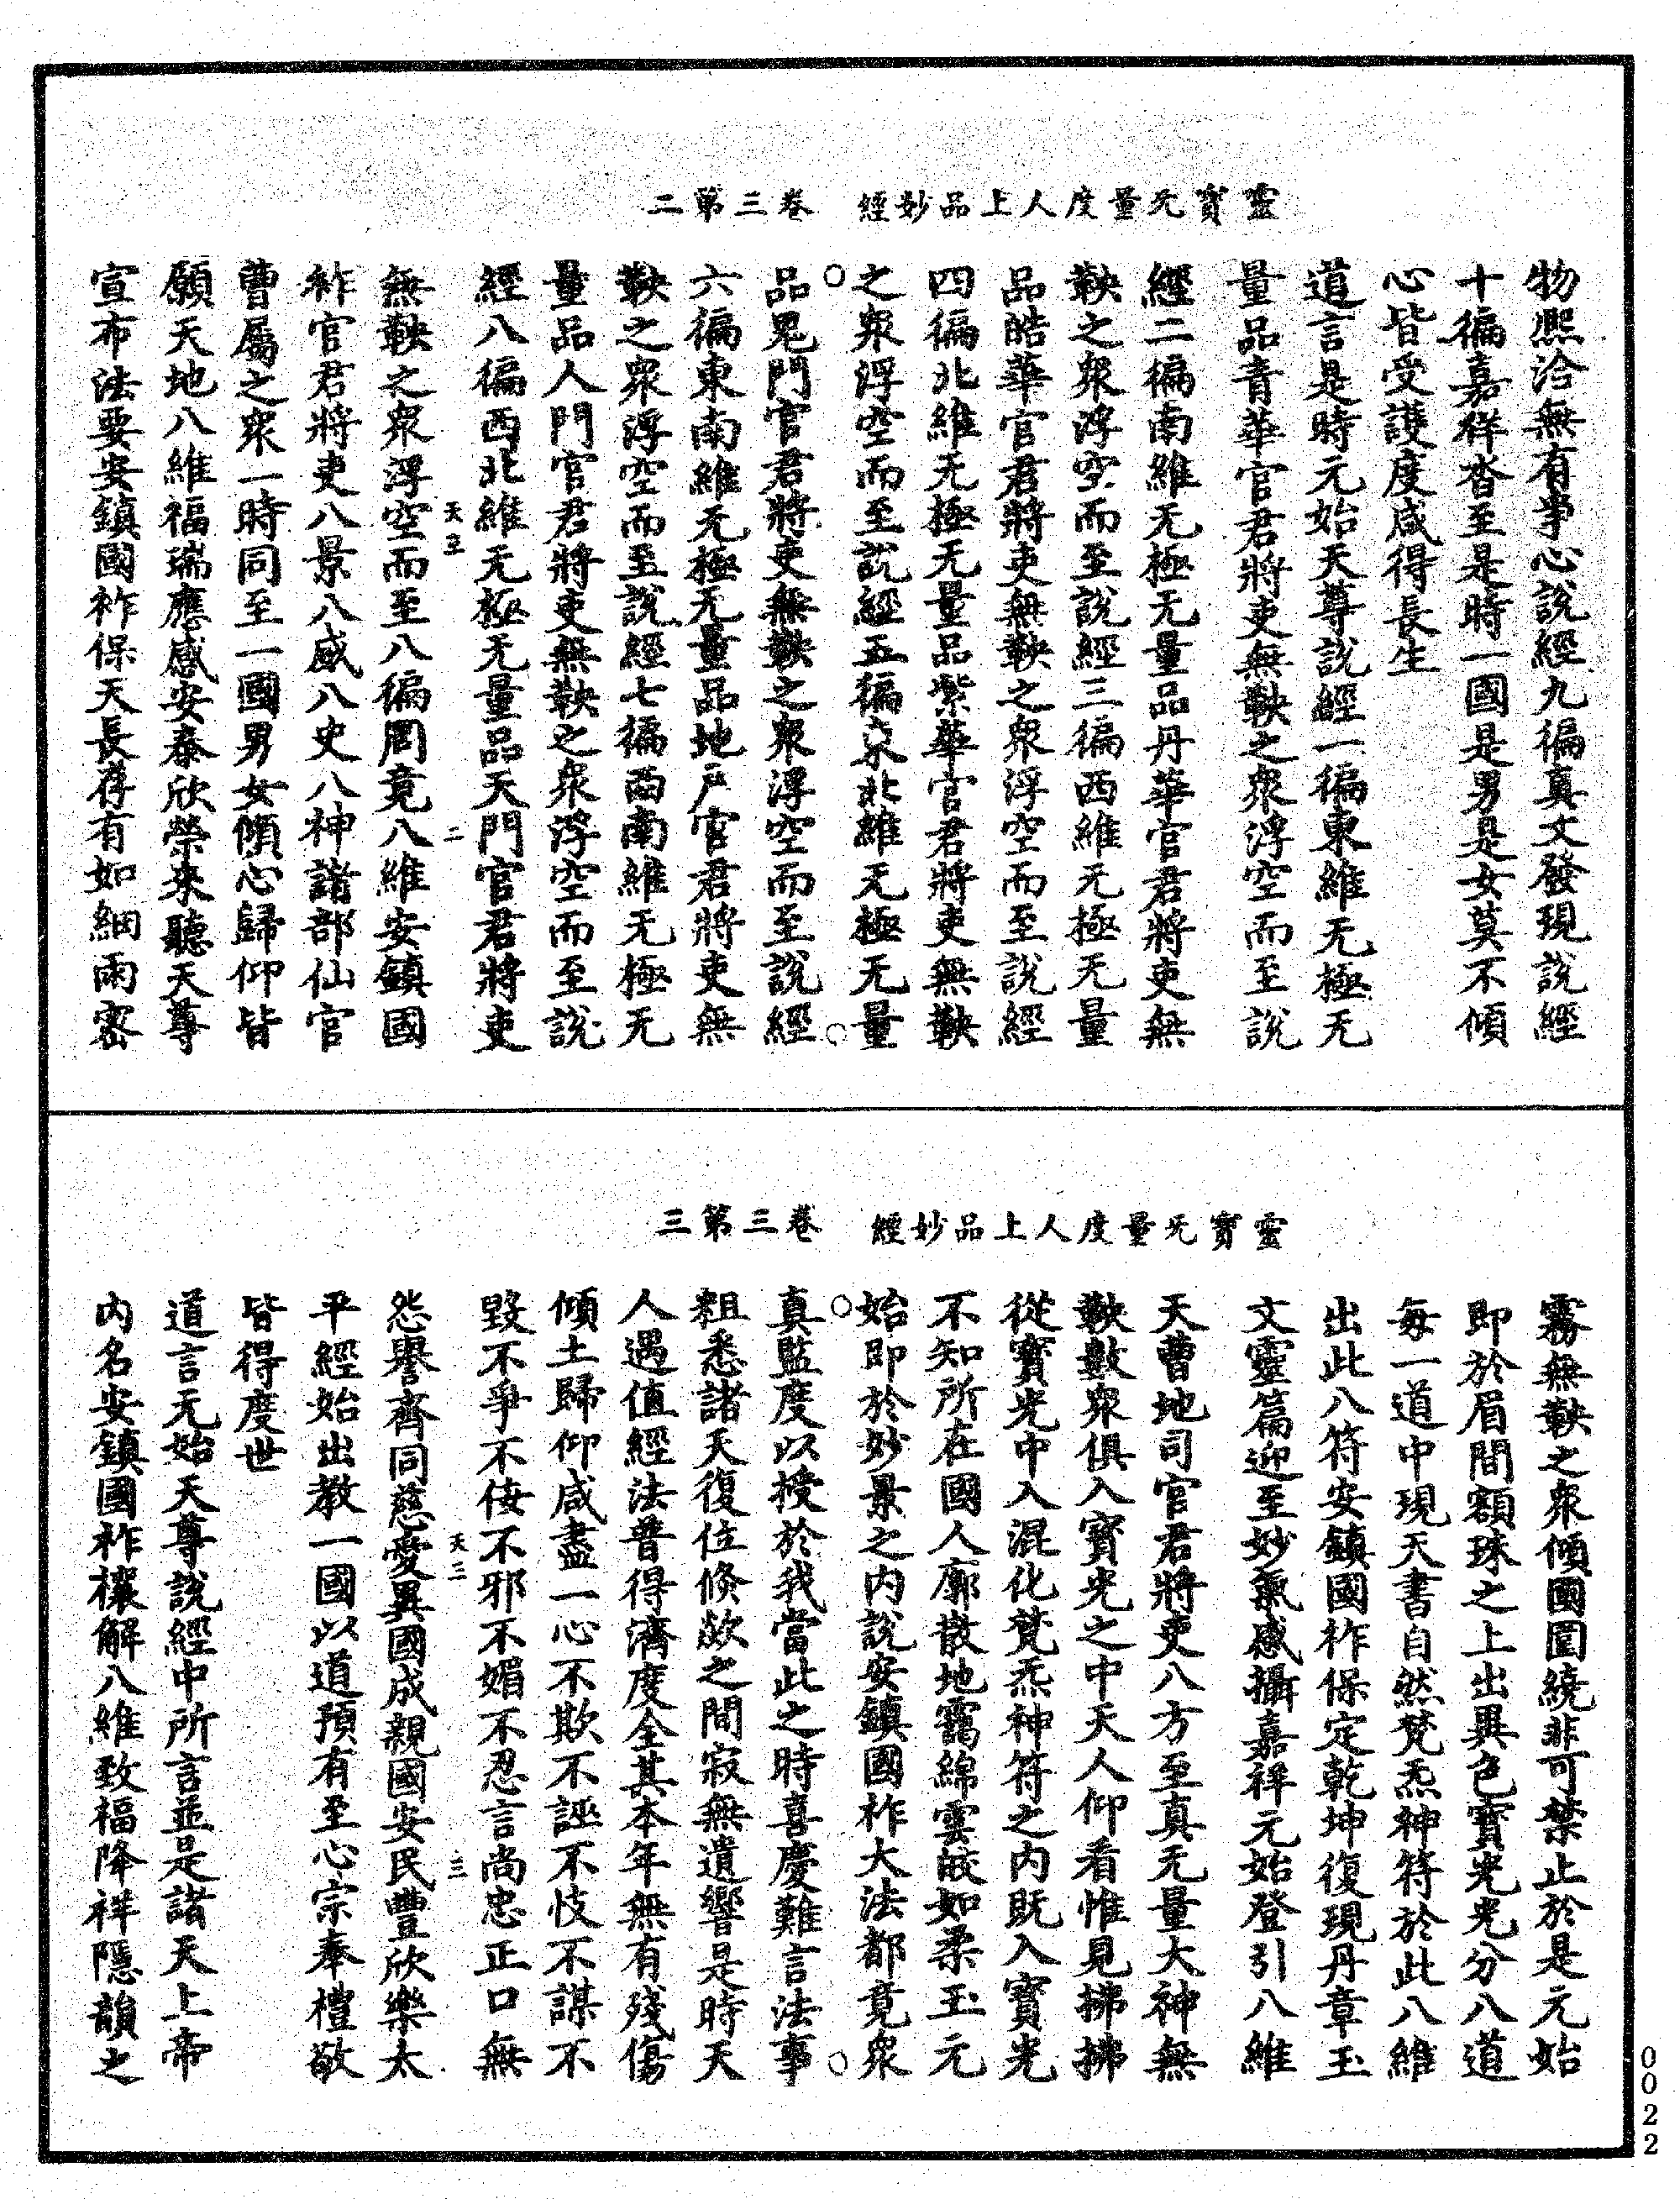 靈寶无量度人上品妙經　卷三第二
物熈洽無有爭心說經九徧真文發現說經
十徧嘉祥沓至是時一國是男是女莫不傾
心皆受護度咸得長生
道言是時元始天尊說經一徧東維无極无
量品青華官君將吏無鞅之衆浮空而至說
經二徧南維无極无量品丹華官君將吏無
鞅之衆浮空而至說經三徧西維无極无量
品皓華官君將吏無鞅之衆浮空而至說經
四徧北維无極无量品紫華官君將吏無鞅
之衆浮空而至說經五徧東北維无極无量
品鬼門官君將吏無鞅之衆浮空而至說經
六徧東南維无極无量品地戶官君將吏無
鞅之衆浮空而至說經七徧西南維无極无
量品人門官君將吏無鞅之衆浮空而至說
經八徧西北維无極无量品天門官君將吏
天三　二
無鞅之衆浮空而至八徧周竟八維安鎮國
祚官君將吏八景八威八史八神諸部仙官
曹屬之衆一時同至一國男女傾心歸仰皆
願天地八維福瑞應感安泰欣榮來聽天尊
宣布法要安鎮國祚保天長存有如細雨密
靈寶无量度人上品妙經　卷三第三
霧無鞅之衆傾國圍繞非可禁止於是元始
即於眉間額珠之上出異色寶光光分八道
每一道中現天書自然梵炁神符於此八維
出此八符安鎮國祚保定乾坤復現丹章玉
文靈篇迎至妙氣感攝嘉祥元始登引八維
天曹地司官君將吏八方至真无量大神無
鞅數衆俱入寶光之中天人仰看惟見拂拂
從寶光中入混化梵炁神符之内既入寶光
不知所在國人廓散地靄綿雲皎如柔玉元
始即於妙景之内說安鎮國祚大法都竟衆
真監度以授於我當此之時喜慶難言法事
粗悉諸天復位倏欻之間寂無遺響是時天
人遇值經法普得濟度全其本年無有殘傷
傾土歸仰咸盡一心不欺不誣不忮不謀不
毀不爭不佞不邪不媚不忍言尚忠正口無
天三　三
怨譽齊同慈愛異國成親國安民豐欣樂太
平經始出教一國以道預有至心宗奉禮敬
皆得度世
道言元始天尊說經中所言並是諸天上帝
内名安鎮國祚禳解八維致福降祥隱韻之
0022